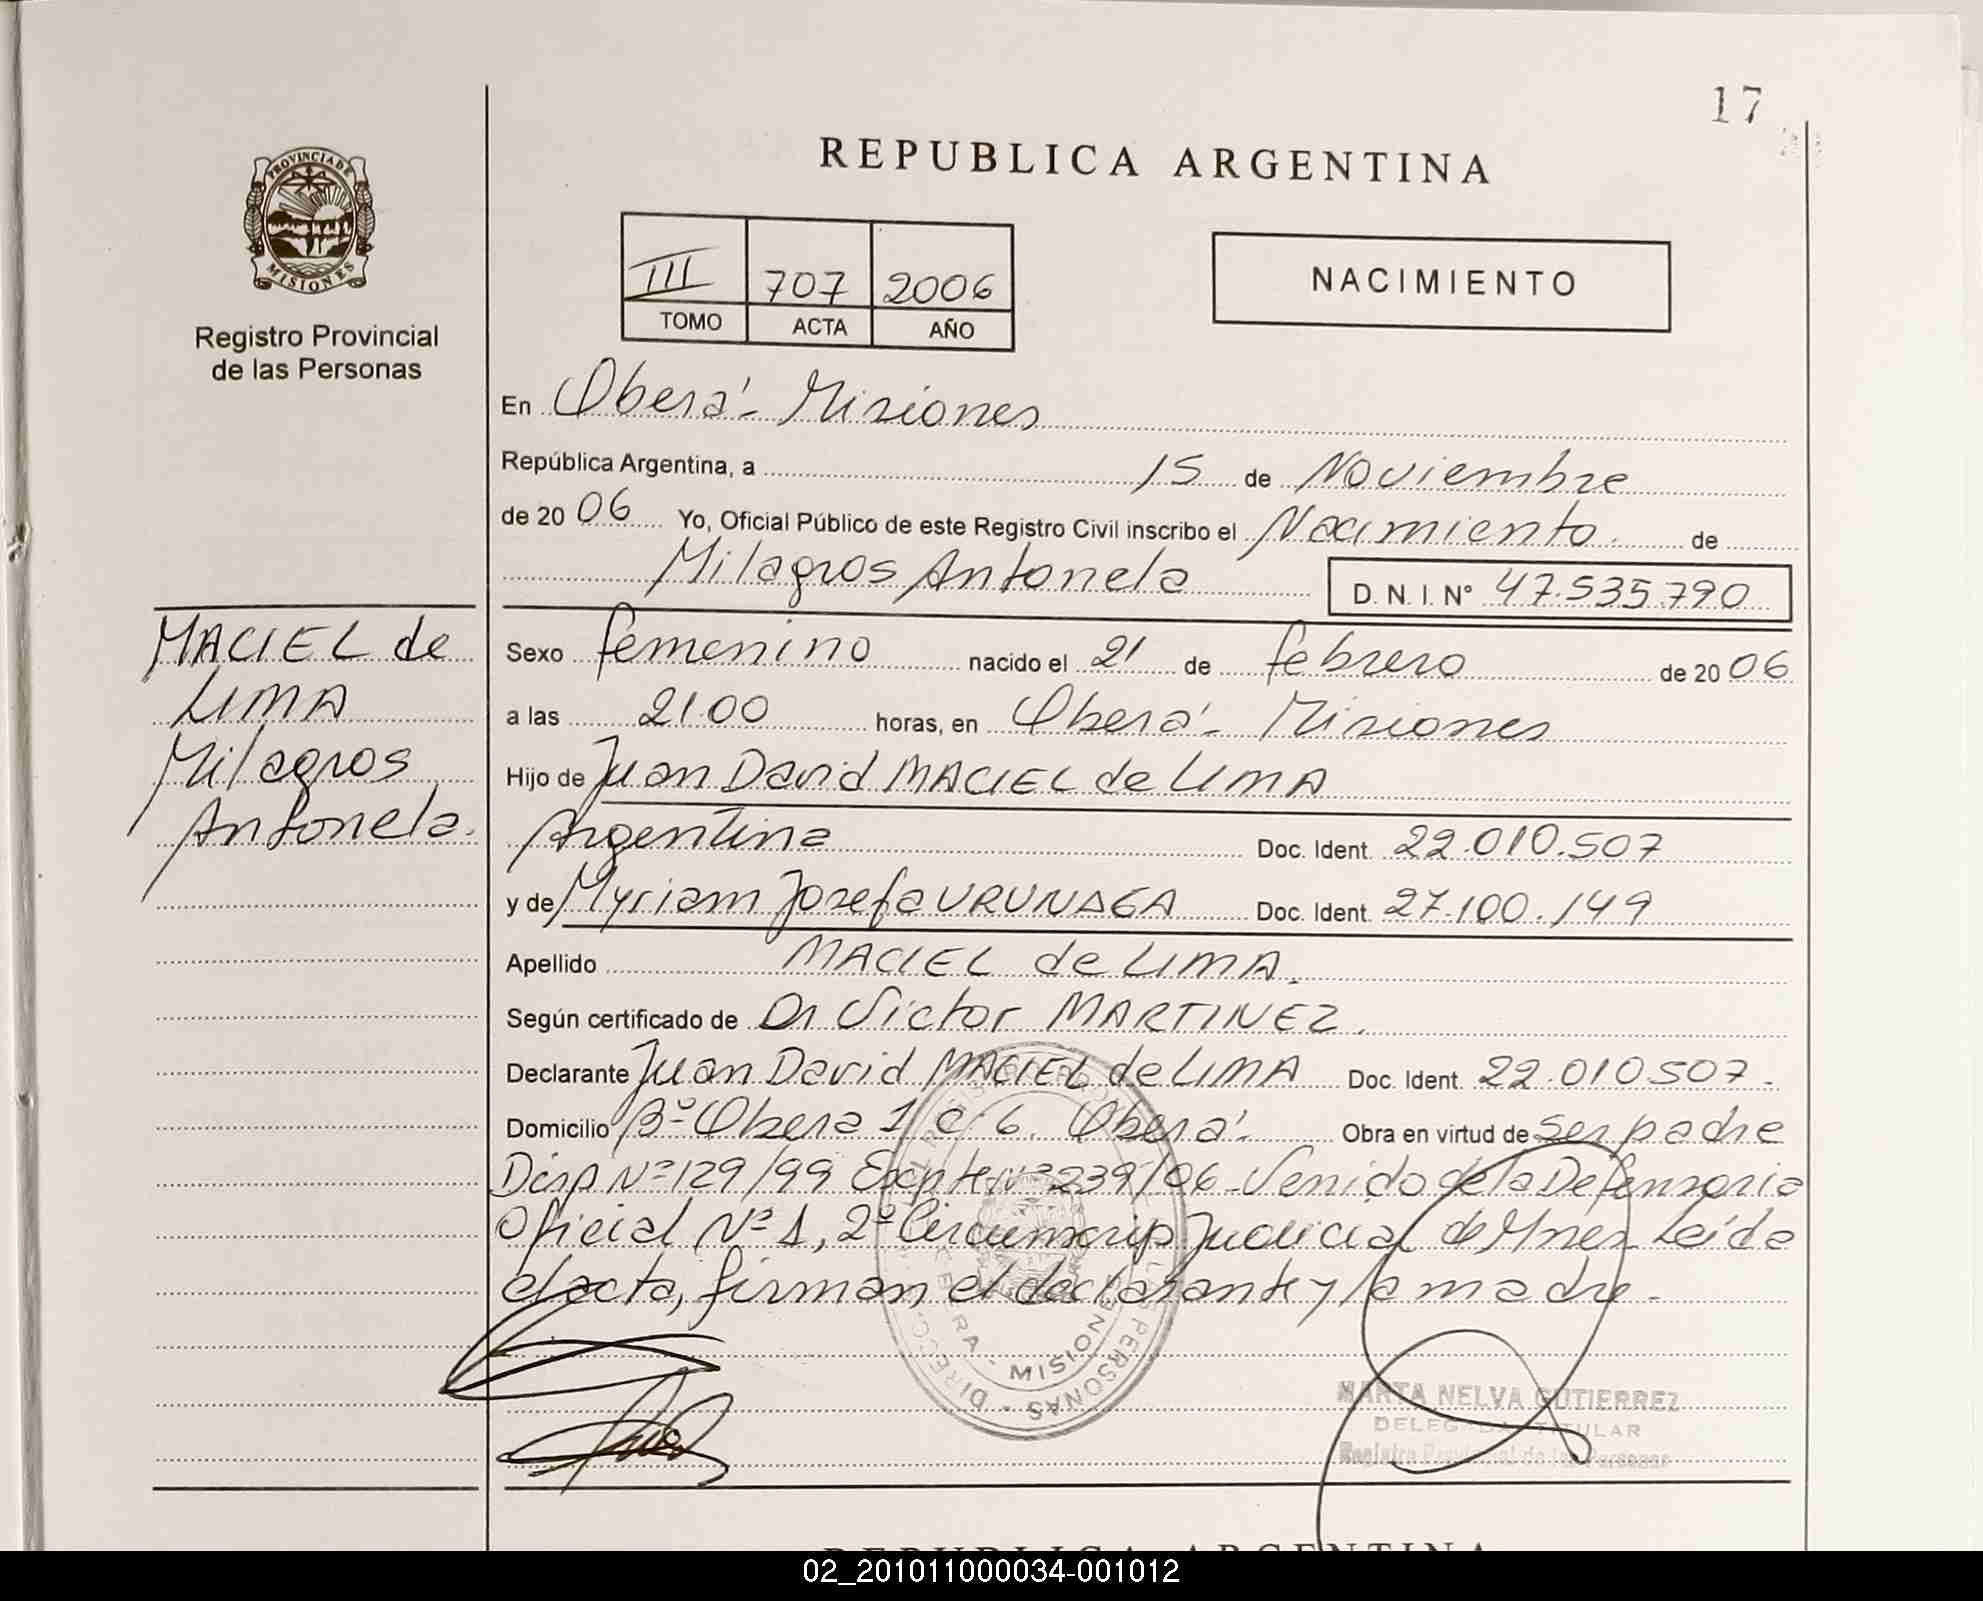 17
REPUBLICA ARGENTINA
PROVINCIA DE
MISIONES
Registro Provincial
de las Personas
III 707 2006
TOMO ACTA AÑO
NACIMIENTO
En Oberá - Misiones
República Argentina, a 15 de Noviembre
de 20 06 Yo, Oficial Público de este Registro Civil inscribo el Nacimiento. de
Milagros Antonela D. N. I. N° 47.535.790
MACIEL de
LIMA
Milagros
Antonela.
Sexo femenino nacido el 21 de febrero de 20 06
a las 21.00 horas, en Oberá - Misiones
Hijo de Juan David MACIEL de LIMA
Argentina Doc. Ident. 22.010.507
y de Myriam Josefa URUNAGA Doc. Ident. 27.100.149
Apellido MACIEL de LIMA.
Según certificado de Dr Victor MARTINEZ.
Declarante Juan David MACIEL de LIMA Doc. Ident. 22.010507.
Domicilio Bº Obera 1 C. 6. Oberá - Obra en virtud de ser padre
Disp Nº 129/99 Expte Nº 239/06 - Venido de la Defensoria
Oficial Nº 1, 2ª Circunscrip Judicial de Mnes - Leída
el acta, firman el declarante y la madre.
MISIONES
PERSONAS
MARTA NELVA GUTIERREZ
DELEGADA TITULAR
Registro Provincial de las Personas
REPUBLICA ARGENTINA
02_201011000034-001012